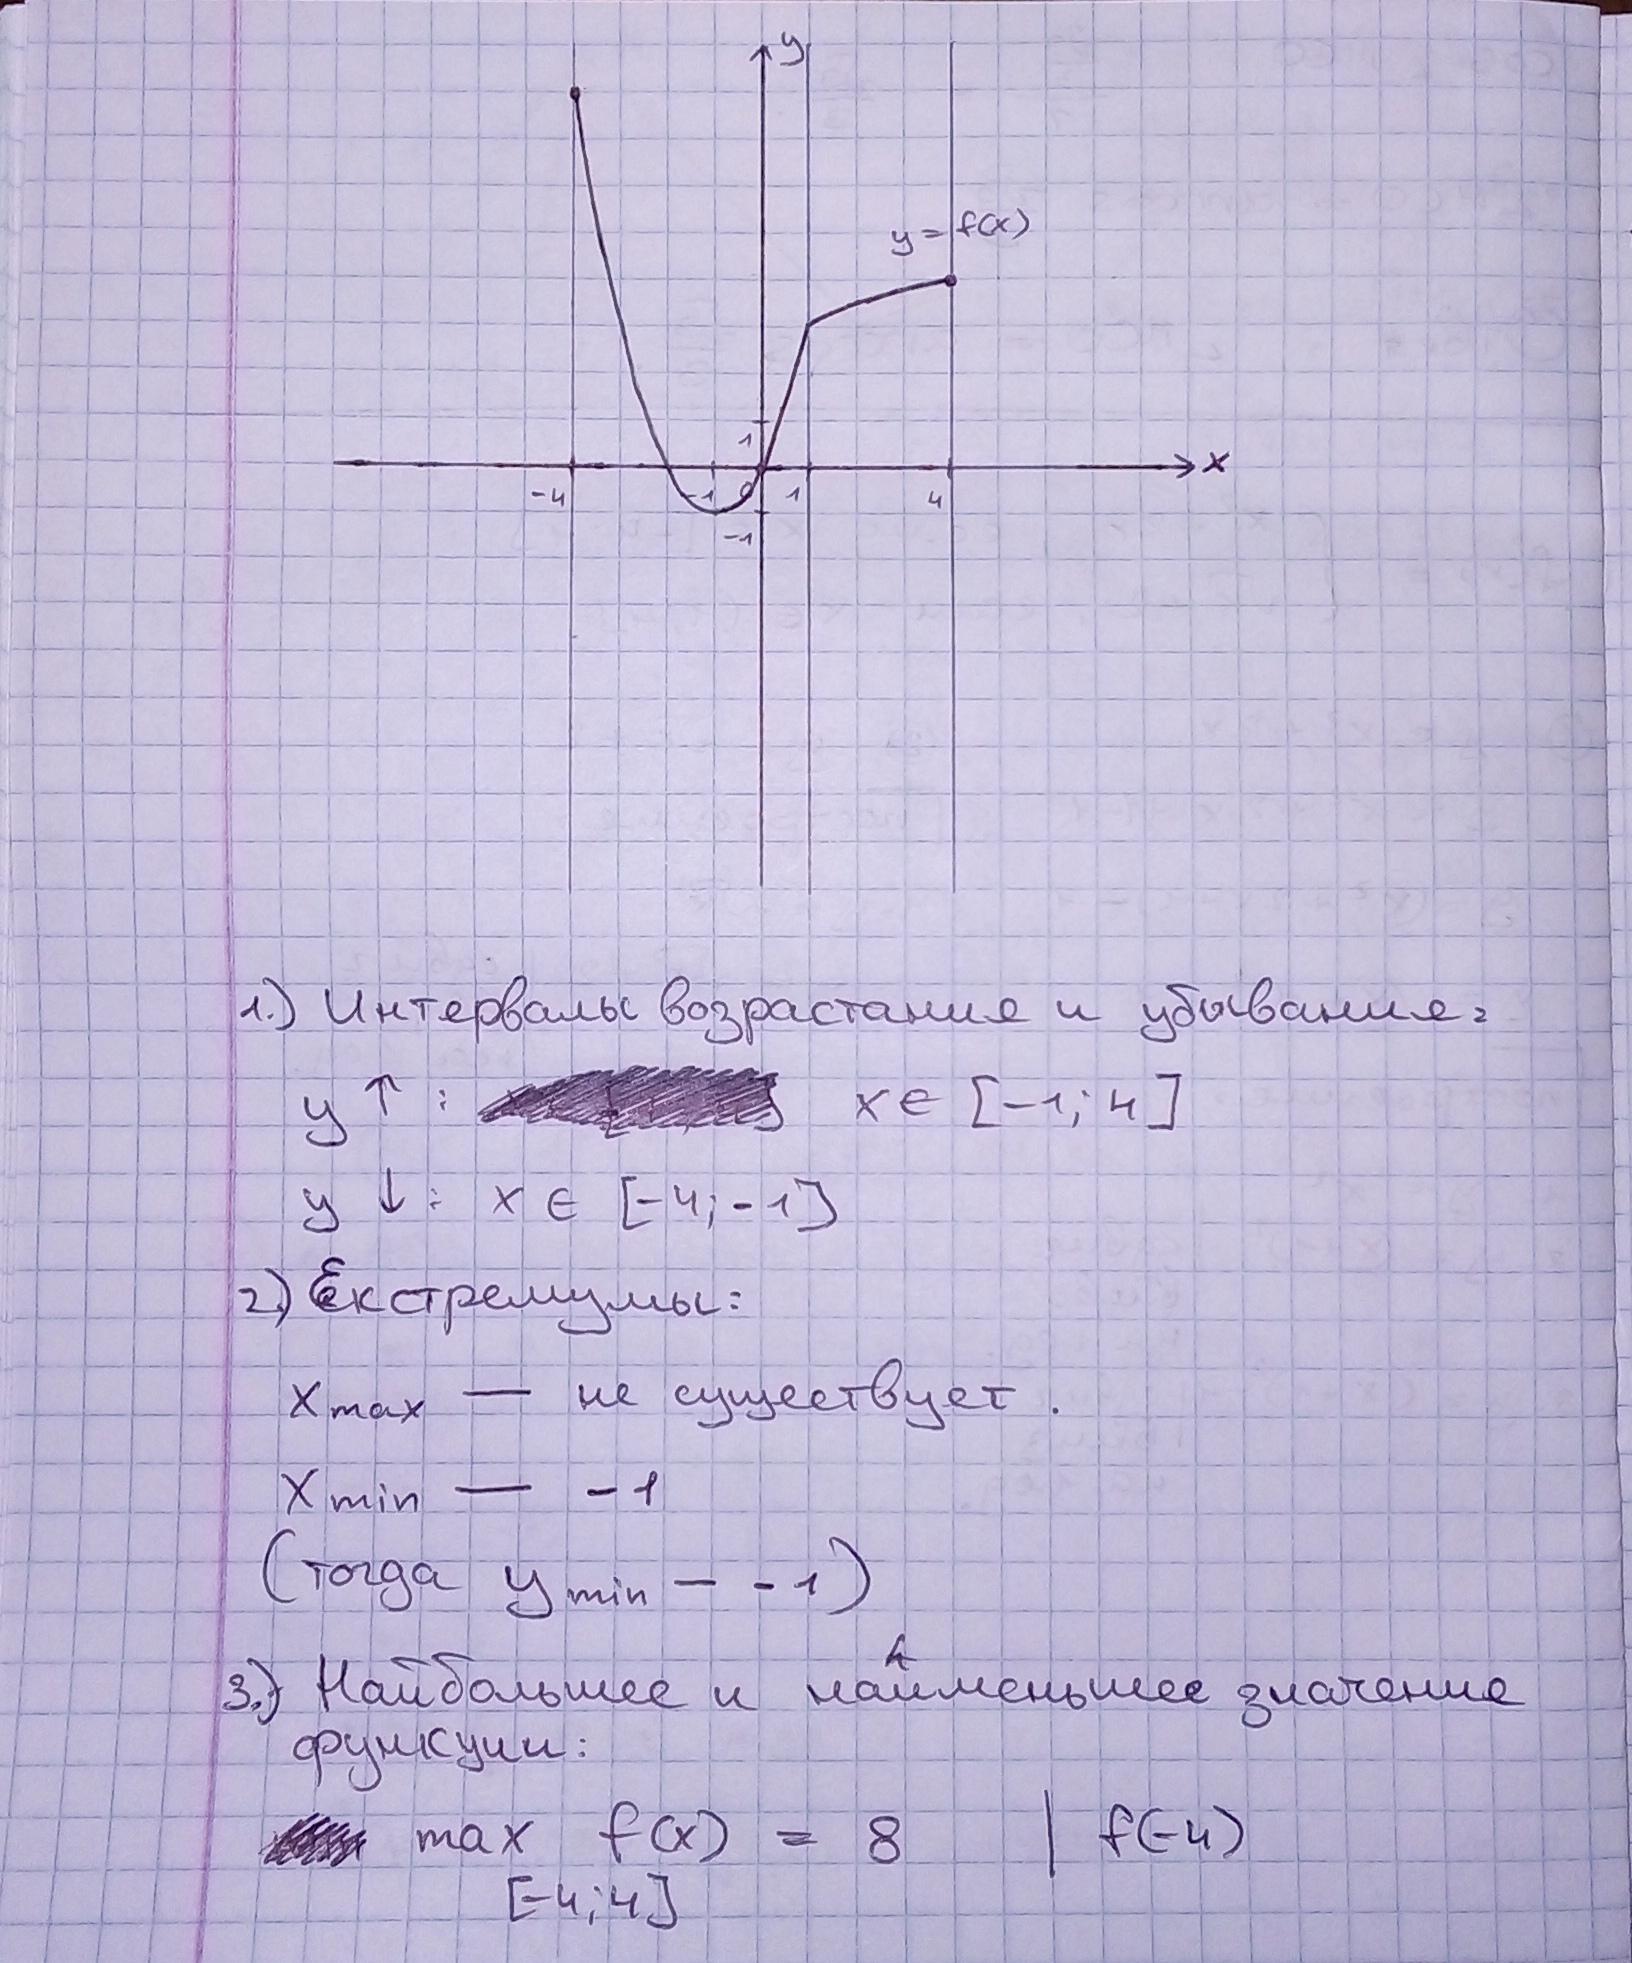 y
y = f(x)
1
x
-4
-1
0
1
4
-1
1.) Интервалы возрастание и убывание:
y ↑ : x ∈ [-1; 4]
y ↓ : x ∈ [-4; -1]
2.) Екстремумы:
x max — не существует.
x min — -1
(тогда y min — -1)
3.) Найбольшее и найменьшее значение
функции:
max f(x) = 8 | f(-4)
[-4; 4]